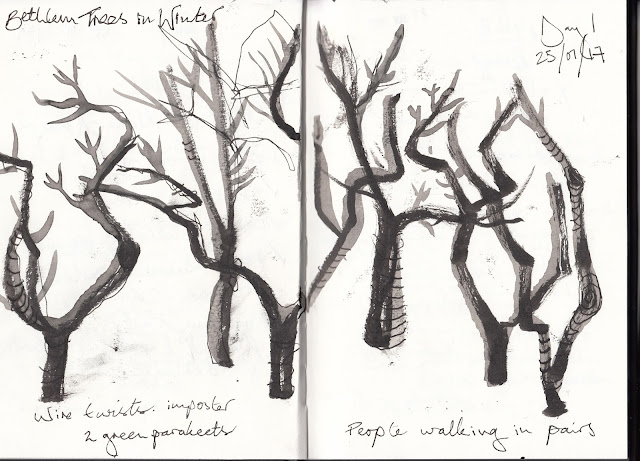 Bethlem Trees in Winter
Day 1
25/01/17
Wire twists. imposter
2 green parakeets
People walking in pairs